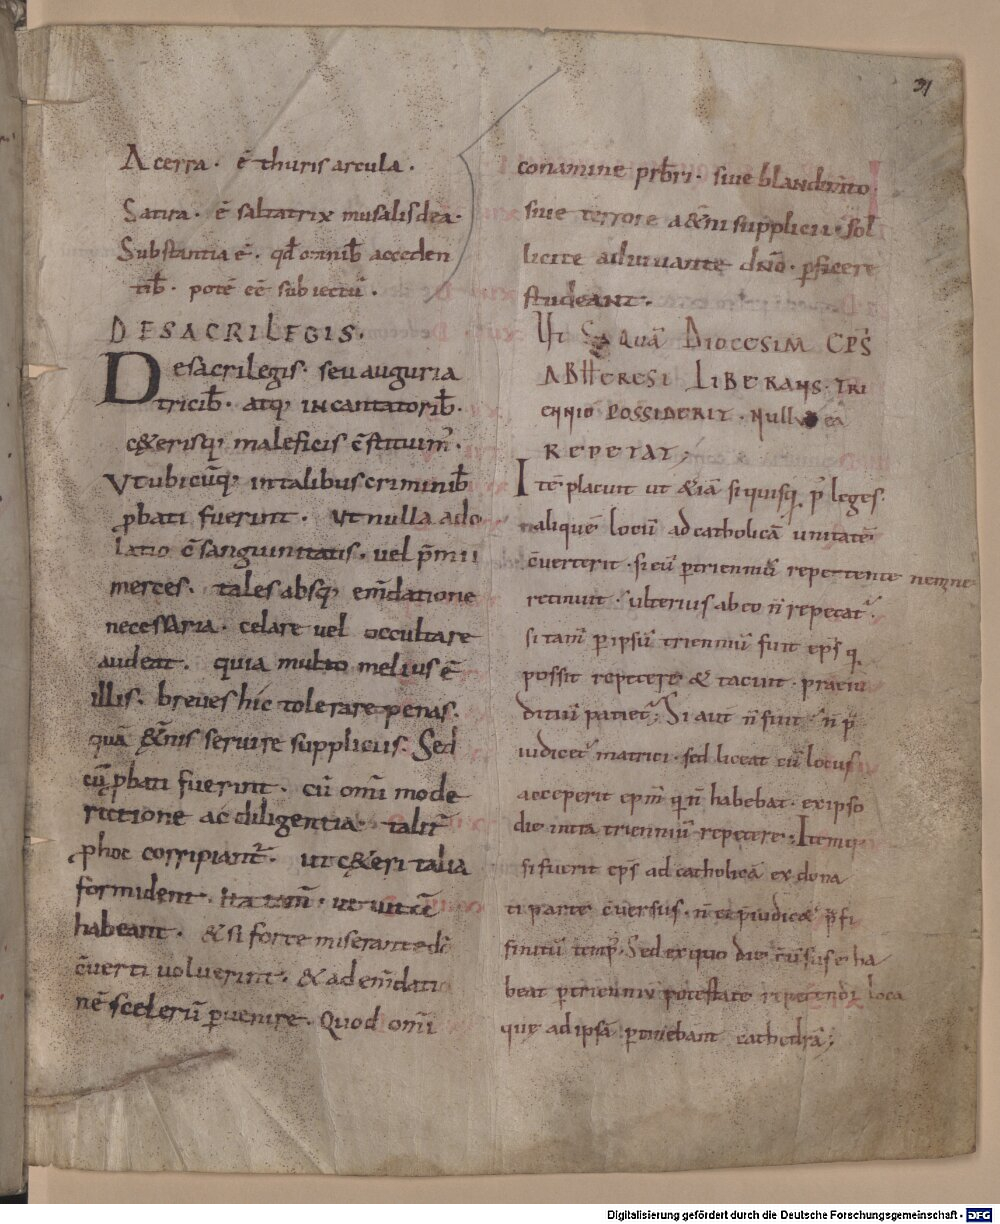 31
Acerra · ē thuris arcula ·
Satira · ē saltatrix musalis dea ·
Substantia ē · qđ omnib; acceden
tib; · potē eē subiectū ·
DE SACRILEGIS ·
De sacrilegis · seu auguria
tricib; · atq; incantatorib; ·
c&erisq; maleficis cstituim̄ ·
Vt ubicūq; in talibus criminib;
ꝓbati fuerint · Vt nulla ado
latio c̄sanguinitatis · uel p̄mii
merces · tales absq; em̄datione
necessaria · celare uel occultare
audeat · quia multo melius ē
illis · breues hic tolerare penas ·
quā &ernis seruire suppliciis · Sed
cū ꝓbati fuerint · cū omi mode
ratione ac diligentia · talit̄
ꝓ hoc corripiant̄ · ut c&eri talia
formident · Ita tam̄ · ut uitā
habeant · & si forte miserante dō
c̄uerti uoluerint · & ad em̄datio
nē scelerū ꝑuenire · Quod omi
conamine prb̄ri · siue blandim̄to
siue terrore a&ni supplicii · sol
licite adiuuante dn̄o · ꝑficere
studeant ·
Vt Si quā Diocesim EPS̄
AB Heresi LIBERANS · TRI
ENNIO POSSIDERIT · Nullus eā
REPETAT;
Itē placuit ut &iā si quisq; p̄ leges
aliquē locū ad catholicā unitatē
c̄uerterit · si eū ꝑ triennium repetente nemine
retinuit · ulterius ab eo n̄ repetat̄ ·
si tam̄ ꝑ ipsū trienniū fuit eps̄ q
possit repetere & tacuit · praeiu
diciū patiet̄; Si aut n̄ fuit · n̄ p̄
iudicet̄ matrici · sed liceat cū locus
acceperit epm̄ q n̄ habebat · ex ipso
die intra trienniū repetere · Itemq;
si fuerit eps̄ ad catholicā ex dona
ti parte c̄uersus · n̄ ei p̄iudicet p̄fi
finitū temp; · Sed ex quo die c̄uersus ē ha
beat ꝑ trienniū potestatē repetendi loca
quę ad ipsā ꝑtinebant cathedrā;
Digitalisierung gefördert durch die Deutsche Forschungsgemeinschaft - DFG